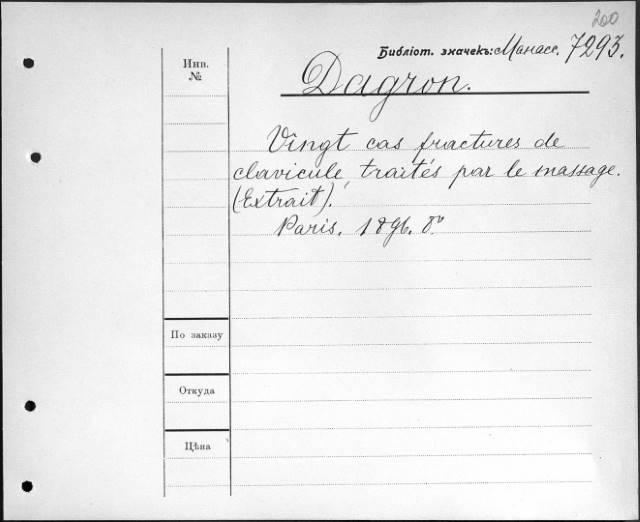 200
Библіот. значекъ: Манасс. 7293.
Инв.
№
Dagron.
Vingt cas fractures de
clavicule, traités par le massage.
(Extrait).
Paris. 1896. 8º
По заказу
Откуда
Цѣна